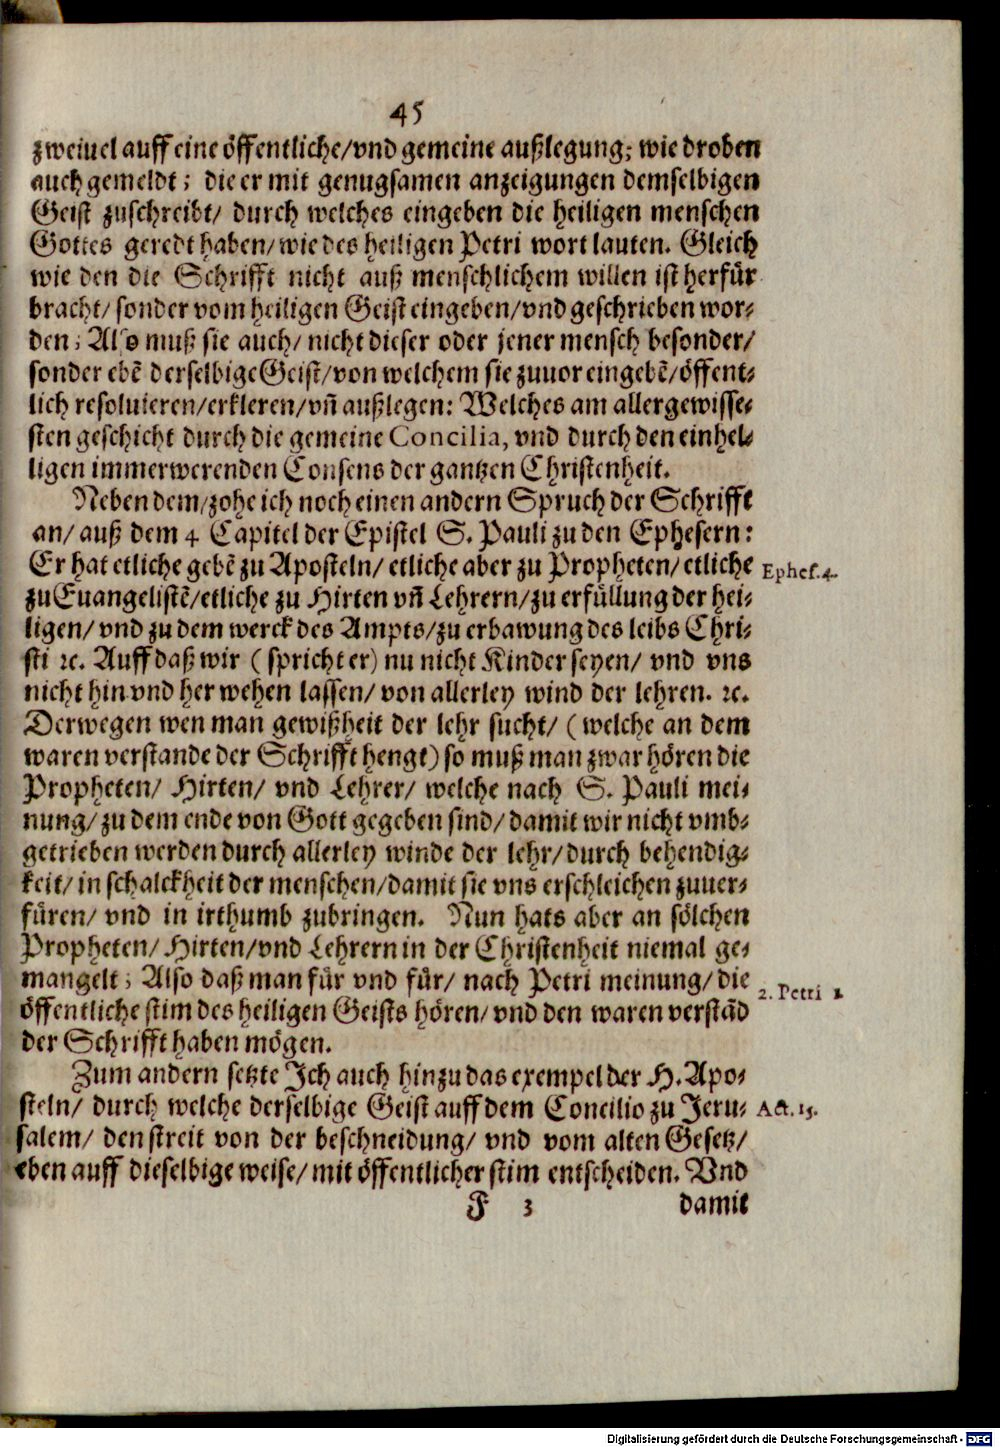 45
zweiuel auff eine öffentliche/vnd gemeine außlegung; wie droben
auch gemeldt; die er mit genugsamen anzeigungen demselbigen
Geist zuschreibt/ durch welches eingeben die heiligen menschen
Gottes geredt haben/wie des heiligen Petri wort lauten. Gleich
wie den die Schrifft nicht auß menschlichem willen ist herfür
bracht/sonder vom heiligen Geist eingeben/vnd geschrieben wor-
den; Also muß sie auch/nicht dieser oder jener mensch besonder/
sonder ebē derselbige Geist/von welchem sie zuuor eingebē/öffent-
lich resoluieren/erkleren/vñ außlegen: Welches am allergewisse-
sten geschicht durch die gemeine Concilia, vnd durch den einhel-
ligen immerwerenden Consens der gantzen Christenheit.
Neben dem/zohe ich noch einen andern Spruch der Schrifft
an/auß dem 4 Capitel der Epistel S. Pauli zu den Ephesern:
Er hat etliche gebē zu Aposteln/etliche aber zu Propheten/etliche
Ephes. 4.
zu Euangelistē/etliche zu Hirten vñ Lehrern/zu erfüllung der hei-
ligen/vnd zu dem werck des Ampts/zu erbawung des leibs Chri-
sti ꝛc. Auff daß wir (spricht er) nu nicht Kinder seyen/ vnd vns
nicht hin vnd her wehen lassen/von allerley wind der lehren. ꝛc.
Derwegen wen man gewißheit der lehr sucht/(welche an dem
waren verstande der Schrifft hengt) so muß man zwar hören die
Propheten/ Hirten/ vnd Lehrer/ welche nach S. Pauli mei-
nung/zu dem ende von Gott gegeben sind/damit wir nicht vmb-
getrieben werden durch allerley winde der lehr/durch behendig-
keit/in schalckheit der menschen/damit sie vns erschleichen zuuer-
füren/ vnd in irthumb zubringen. Nun hats aber an sölchen
Propheten/Hirten/vnd Lehrern in der Christenheit niemal ge-
mangelt; Also daß man für vnd für/ nach Petri meinung/die
2. Petri 1
öffentliche stim des heiligen Geists hören/vnd den waren verstād
der Schrifft haben mögen.
Zum andern setzte Ich auch hinzu das exempel der H. Apo-
steln/ durch welche derselbige Geist auff dem Concilio zu Jeru-
Act. 15.
salem/ den streit von der beschneidung/ vnd vom alten Gesetz/
eben auff dieselbige weise/mit öffentlicher stim entscheiden. Vnd
F 3 damit
Digitalisierung gefördert durch die Deutsche Forschungsgemeinschaft - DFG